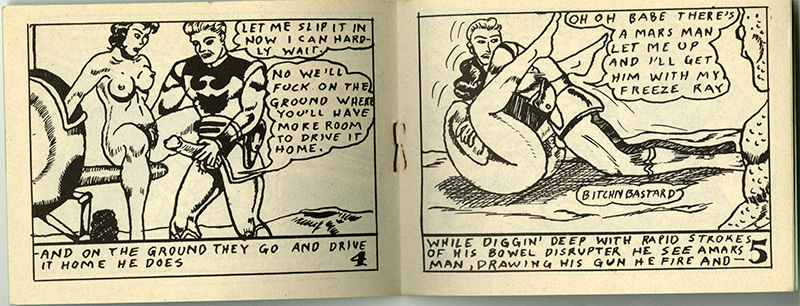 LET ME SLIP IT IN
NOW I CAN HARD-
LY WAIT.
NO WE'LL
FUCK ON THE
GROUND WHERE
YOU'LL HAVE
MORE ROOM
TO DRIVE IT
HOME.
-AND ON THE GROUND THEY GO AND DRIVE
IT HOME HE DOES
4
OH OH BABE THERE'S
A MARS MAN
LET ME UP
AND I'LL GET
HIM WITH MY
FREEZE RAY
BITCHN BASTARD
WHILE DIGGIN' DEEP WITH RAPID STROKES
OF HIS BOWEL DISRUPTER HE SEE A MARS
MAN, DRAWING HIS GUN HE FIRE AND—
5